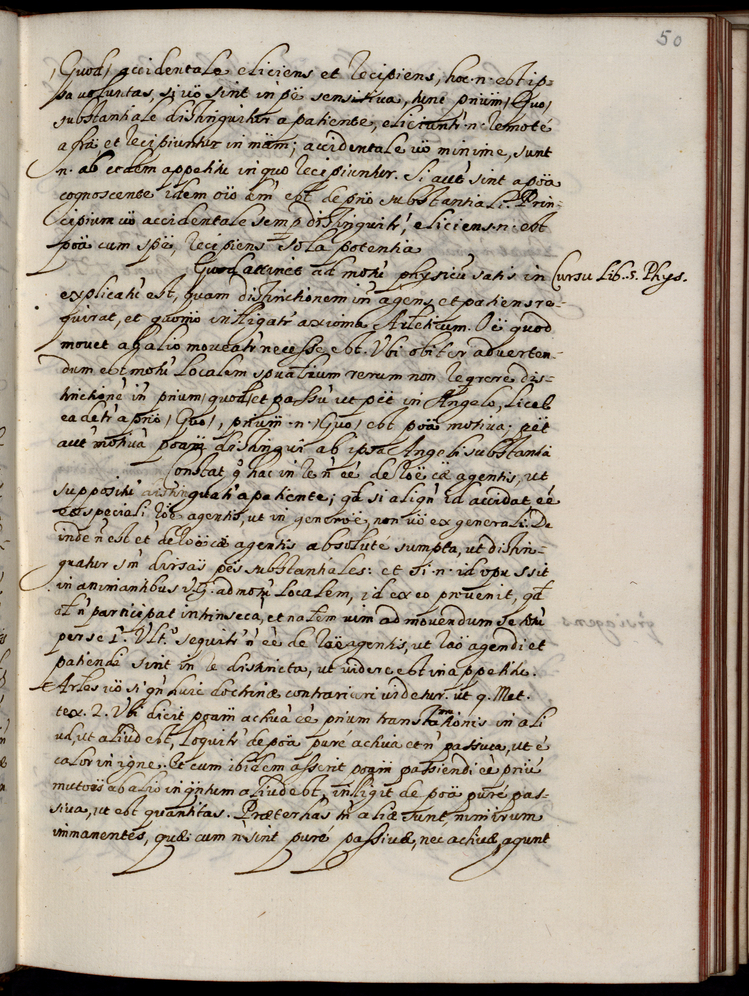 50
(Quod) accidentale eliciens et recipiens, hoc .n. est ip-
sa voluntas, si uö sint in pë sensitiua, tunc priüm (Quo)
substantiale distinguitur a patiente, eliciunt' .n. remoté
a fra, et recipiuntur in mäm; accidentale uö minime, sunt
.n. ab eodem appetitu in quo recipiuntur. Si aut' sint a pöa
cognoscente idem oïo est de prïo substantiali. Prin-
cipium uö accidentale semp distinguit', eliciens .n. est
pöa cum spë, recipiens sola potentia
Quod attinet ad motu' physicu' satis in Cursu Lib. 5. Phys.
explicatu' est, quam distinctionem int' agens, et patiens re-
quirat, et quomo intligatr axioma Artelicum. Oë quod
mouet ab alio moueatr' necesse est. Vbi obiter aduerten-
dum est motu' localem spualium rerum non reqrere dis-
tinctione' int' prium (quod) et passu' ut pët in Angelo, licet
ea detr' a prïo (Quo), prium .n. (Quo) est pöa motiua; pët
aut' motiua' pöam distingui ab ipsa Angeli substantia
Constat g' hac in re n' eë de röë cäe agentis, ut
suppositu' distinguatr' a patiente; qd si aliqn' id accidat eë
ex speciali röe agentis, ut in generöe, non uö ex generali. De
inde n' est et de röe cäe agentis absoluté sumpta, ut distin-
guatur s'm diuersas pës substantiales: et si .n. id opus sit
in animantibus v.g. ad motu' Localem, id ex eo prouenit, qd
n' participat intrinseca', et natem uim ad mouendum se totu'
per se 1°. Vlt.° sequitr' n' eë de röe agentis, ut räo agendi et
patiendi sint in re distincta, ut uidere est in appetitu.
Artles uö si qn' huic doctrinæ contrariari uidetur. ut 9. Met.
tex. 2. Vbi dicit pöam actiua' eë prium transmutationis in ali
ud, ut aliud est, loquitr' de pöa puré actiua et n' passiua, ut é
calor in igne. Et cum ibidem asserit pöam patiendi eë priu'
mutöis ab alio in qntum aliud est, intligit de pöa puré pas-
siua, ut est quantitas. Præter has tn' aliæ sunt nimirum
immanentes, quæ cum n' sint puré passiuæ, nec actiuæ, agunt